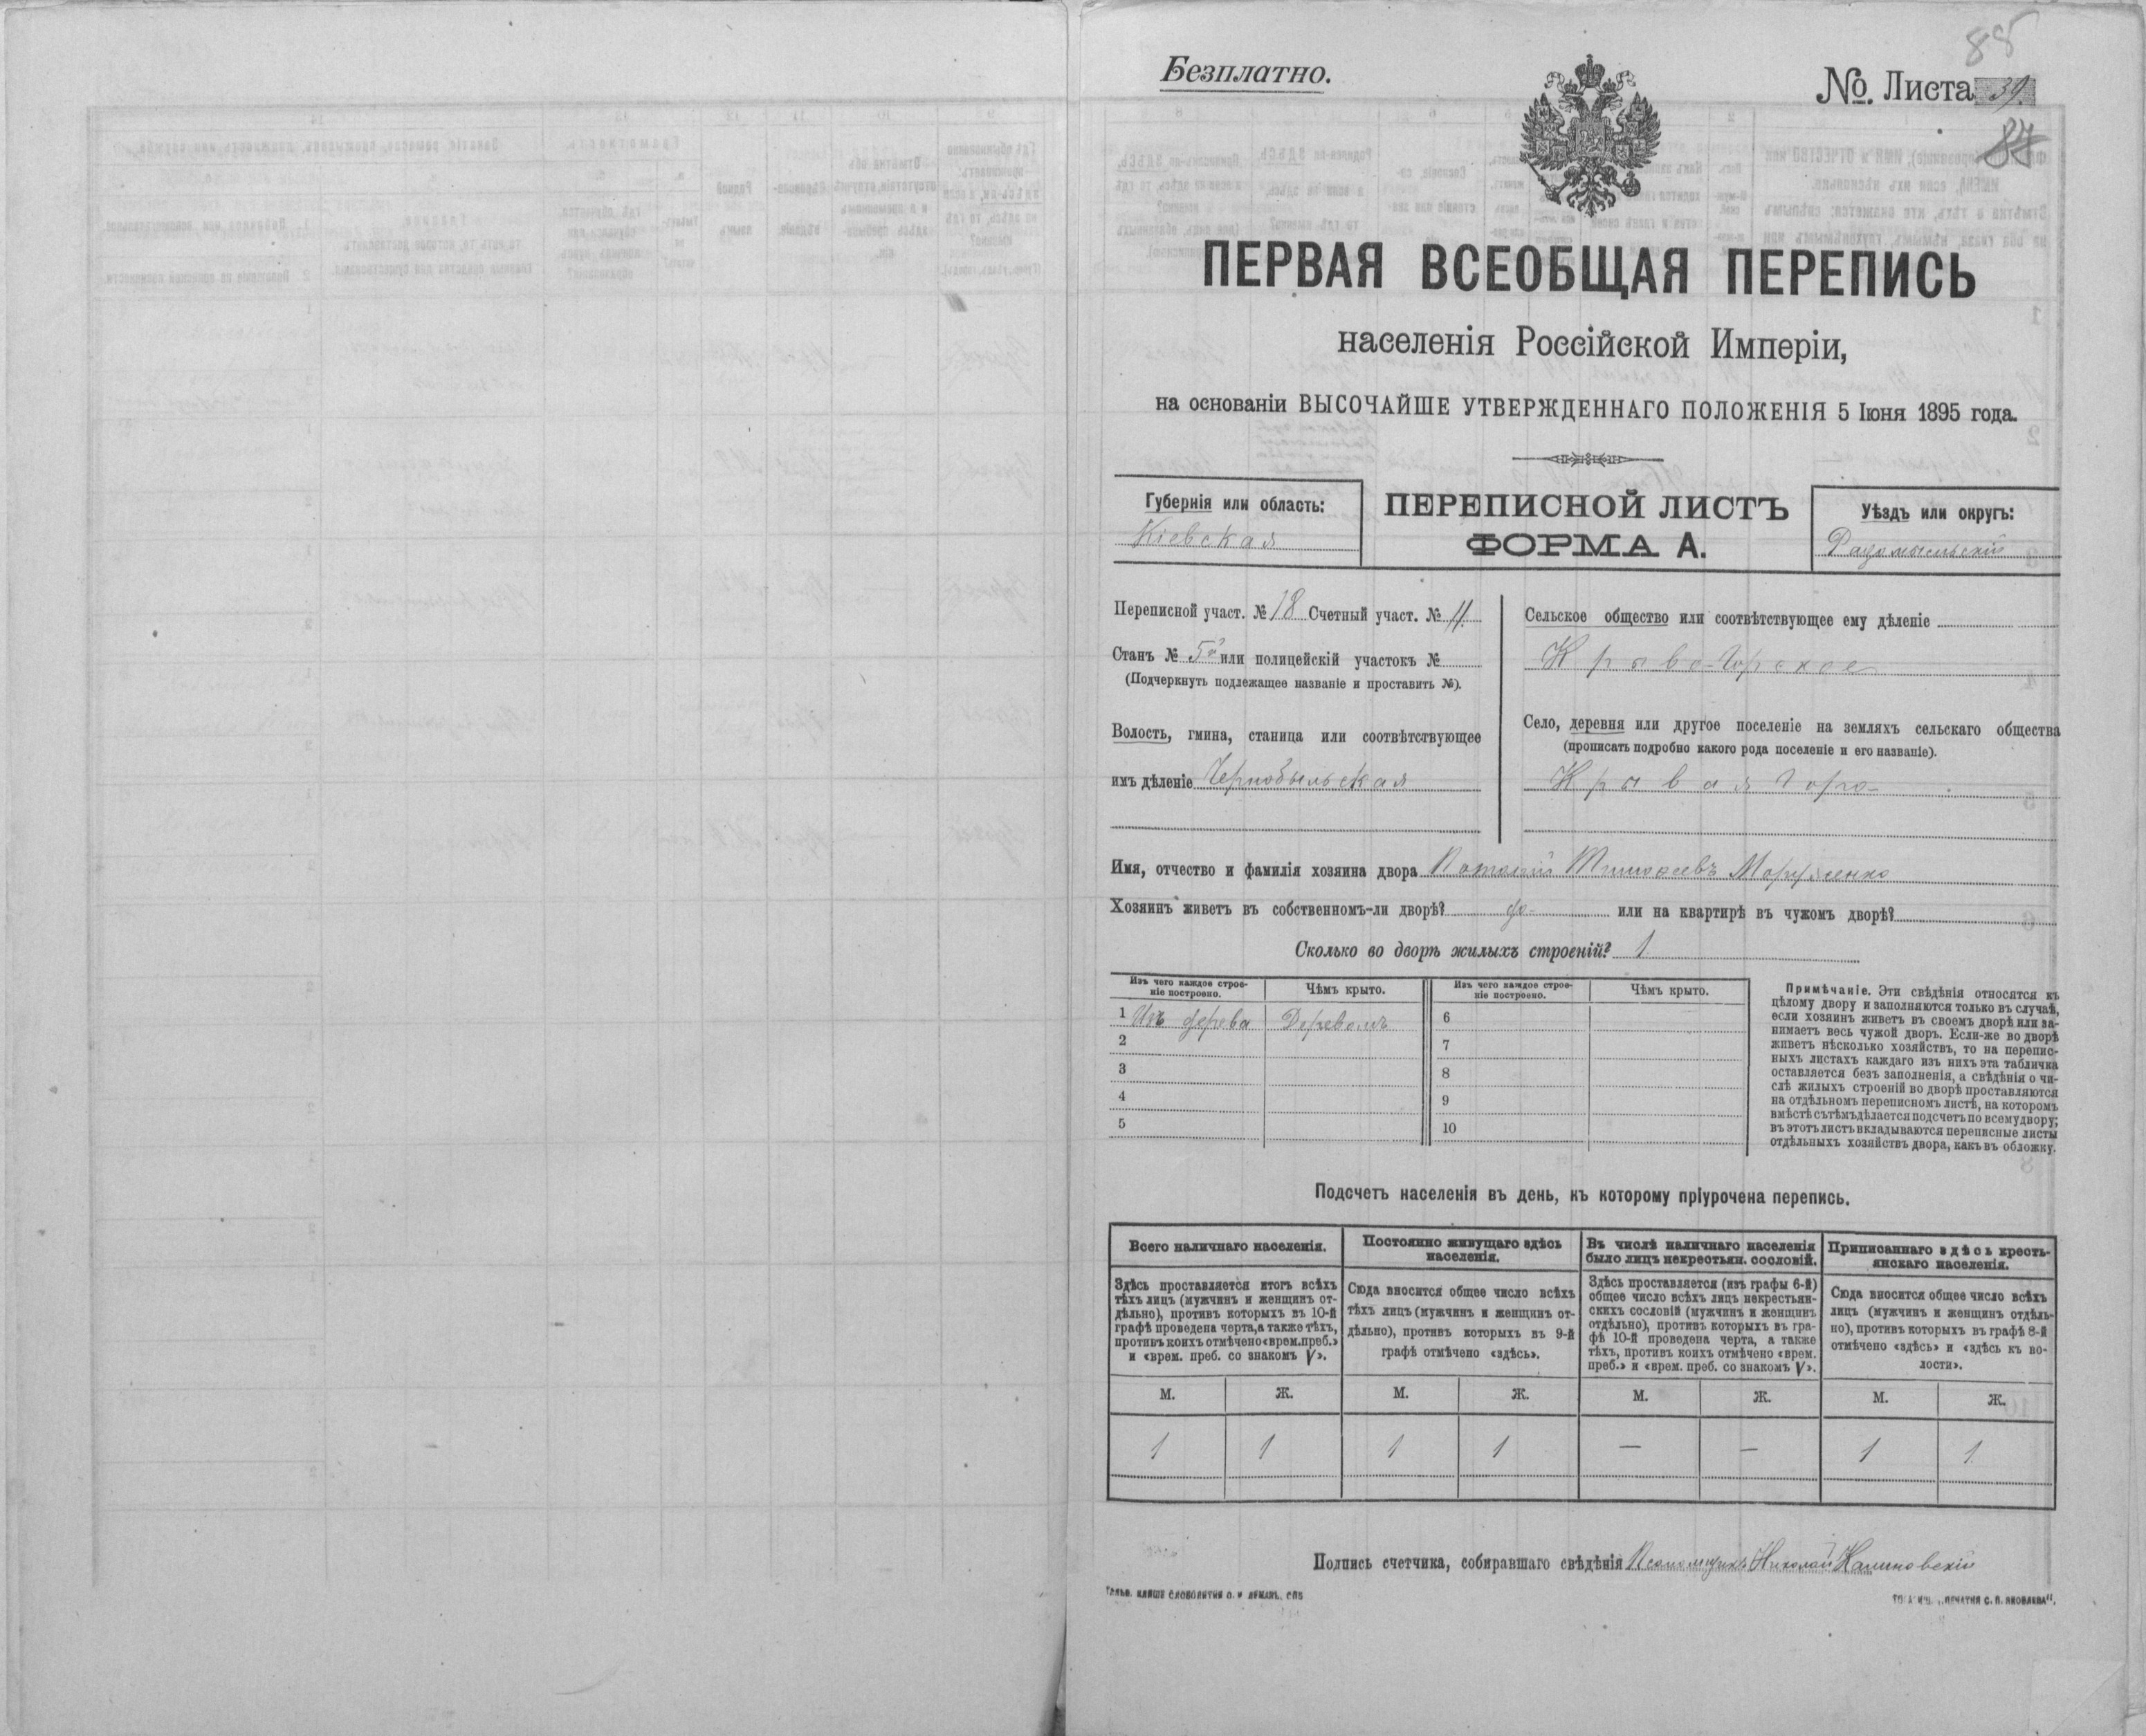 88
Безплатно.
№ Листа 39.
87
ПЕРВАЯ ВСЕОБЩАЯ ПЕРЕПИСЬ
населенія Россійской Имперіи,
на основаніи ВЫСОЧАЙШЕ УТВЕРЖДЕННАГО ПОЛОЖЕНІЯ 5 Іюня 1895 года.
Губернія или область:
Кіевская
ПЕРЕПИСНОЙ ЛИСТЪ
ФОРМА А.
Уѣздъ или округъ:
Радомысльскій
Переписной участ. № 18 Счетный участ. № 11.
Станъ № 5й или полицейскій участокъ №
(Подчеркнуть подлежащее названіе и проставить №).
Волость, гмина, станица или соотвѣтствующее
имъ дѣленіе Чернобыльская
Сельское общество или соотвѣтствующее ему дѣленіе
Криво-Горское
Село, деревня или другое поселеніе на земляхъ сельскаго общества
(прописать подробно какого рода поселеніе и его названіе).
Кривая Гора
Имя, отчество и фамилія хозяина двора Тимофеевъ
Хозяинъ живетъ въ собственномъ-ли дворѣ? да или на квартирѣ въ чужомъ дворѣ?
Сколько во дворѣ жилыхъ строеній? 1
Изъ чего каждое строе-
ніе построено.
Чѣмъ крыто.
Изъ чего каждое строе-
ніе построено.
Чѣмъ крыто.
1 Изъ дерева Деревомъ 6
2 7
3 8
4 9
5 10
Примѣчаніе. Эти свѣдѣнія относятся къ
цѣлому двору и заполняются только въ случаѣ,
если хозяинъ живетъ въ своемъ дворѣ или за-
нимаетъ весь чужой дворъ. Если-же во дворѣ
живетъ нѣсколько хозяйствъ, то на перепис-
ныхъ листахъ каждаго изъ нихъ эта табличка
оставляется безъ заполненія, а свѣдѣнія о чи-
слѣ жилыхъ строеній во дворѣ проставляются
на отдѣльномъ переписномъ листѣ, на которомъ
вмѣстѣ съ тѣмъ дѣлается подсчетъ по всему двору;
въ этотъ листъ вкладываются переписные листы
отдѣльныхъ хозяйствъ двора, какъ въ обложку.
Подсчетъ населенія въ день, къ которому пріурочена перепись.
Всего наличнаго населенія.
Здѣсь проставляется итогъ всѣхъ
тѣхъ лицъ (мужчинъ и женщинъ от-
дѣльно), противъ которыхъ въ 10-й
графѣ проведена черта, а также тѣхъ,
противъ коихъ отмѣчено «врем. преб.»
и «врем. преб. со знакомъ V».
Постоянно живущаго здѣсь
населенія.
Сюда вносится общее число всѣхъ
тѣхъ лицъ (мужчинъ и женщинъ от-
дѣльно), противъ которыхъ въ 9-й
графѣ отмѣчено «здѣсь».
Въ числѣ наличнаго населенія
было лицъ некрестьян. сословій.
Здѣсь проставляется (изъ графы 6-й)
общее число всѣхъ лицъ некрестьян-
скихъ сословій (мужчинъ и женщинъ
отдѣльно), противъ которыхъ въ гра-
фѣ 10-й проведена черта, а также
тѣхъ, противъ коихъ отмѣчено «врем.
преб.» и «врем. преб. со знакомъ V».
Приписаннаго здѣсь кресть-
янскаго населенія.
Сюда вносится общее число всѣхъ
лицъ (мужчинъ и женщинъ отдѣль-
но), противъ которыхъ въ графѣ 8-й
отмѣчено «здѣсь» и «здѣсь къ во-
лости».
М. Ж. М. Ж. М. Ж. М. Ж.
1 1 1 1 — — 1 1
Подпись счетчика, собиравшаго свѣдѣнія Псаломщикъ Николай Калиновскій